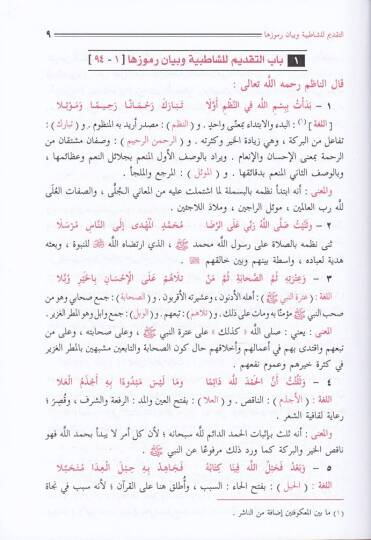 التقديم للشاطبية وبيان رموزها ٩
١ باب التقديم للشاطبية وبيان رموزها [ ١ - ٩٤ ]
قال الناظم رحمه الله تعالى :
١ - بَدَأْتُ بِبِسْمِ اللَّه فِي النَّظْمِ أَوَّلَا تَبَارَكَ رَحْمَانًا رَحِيمًا وَمَوْئِلَا
[ اللغة ] (١) : البدء والابتداء بمعنًى واحد . و ( النظم ) : مصدر أريد به المنظوم . و ( تبارك ) :
تفاعل من البركة ، وهي زيادة الخير وكثرته . و ( الرحمن الرحيم ) : وصفان مشتقان من
الرحمة بمعنى الإحسان والإنعام . ويراد بالوصف الأول المنعم بجلائل النعم وعظائمها ،
وبالوصف الثاني المنعم بدقائقها . و ( الموئل ) : المرجع والملجأ .
والمعنى : أنه ابتدأ نظمه بالبسملة لما اشتملت عليه من المعاني الجُلَّى ، والصفات العُلَى
لله رب العالمين ، موئل الراجين ، وملاذ اللاجئين .
٢ - وَثَنَّيْتُ صَلَّى اللَّهُ رَبِّي عَلَى الرِّضَا مُحَمَّدٍ الْمُهْدَى إِلَى النَّاسِ مُرْسَلَا
ثنى نظمه بالصلاة على رسول الله محمد ﷺ ، الذي ارتضاه الله للنبوة ، وبعثه
هدية لعباده ، واسطة بينهم وبين خالقهم
٣ - وَعِتْرَتِهِ ثُمَّ الصَّحَابَةِ ثُمَّ مَنْ تَلَاهُمْ عَلَى الْإِحْسَانِ بِالْخَيْرِ وُبَّلَا
اللغة : ( عترة النبي ﷺ ) : أهله الأدنون ، وعشيرته الأقربون . و ( الصحابة ) : جمع صحابي وهو من
صحب النبي ﷺ مؤمنًا به ومات على ذلك . و ( تلاهم ) : تبعهم . و ( الوبل ) : جمع وابل وهو المطر الغزير .
المعنى : يعني : صلى الله « كذلك » على عترة النبي ﷺ ، وعلى صحابته ، وعلى من
تبعهم واقتدى بهم في أعمالهم وأخلاقهم حال كون الصحابة والتابعين مشبهين بالمطر الغزير
في كثرة خيرهم وعموم نفعهم .
٤ - وَثَلَّثْتُ أَنَّ الْحَمْدَ لِلَّهِ دَائِمًا وَمَا لَيْسَ مَبْدُوءًا بِهِ أَجْذَمُ الْعَلَا
اللغة : ( الأجذم ) : الناقص . و ( العلا ) : بفتح العين والمد : الرفعة والشرف ، وقُصِرَ ؛
رعاية لقافية الشعر .
والمعنى : أنه ثلث بإثبات الحمد الدائم لله سبحانه ؛ لأن كل أمر لا يبدأ بحمد الله فهو
ناقص الخير والبركة كما ورد ذلك مرفوعًا عن النبي ﷺ .
٥ - وَبَعْدُ فَحَبْلُ اللَّهِ فِينَا كِتَابُهُ فَجَاهِدْ بِهِ حِبْلَ الْعِدَا مُتَحَبِّلَا
اللغة : ( الحبل ) : بفتح الحاء : السبب ، وأُطلق هنا على القرآن ؛ لأنه سبب في نجاة
(١) ما بين المعكوفتين إضافة من الناشر .